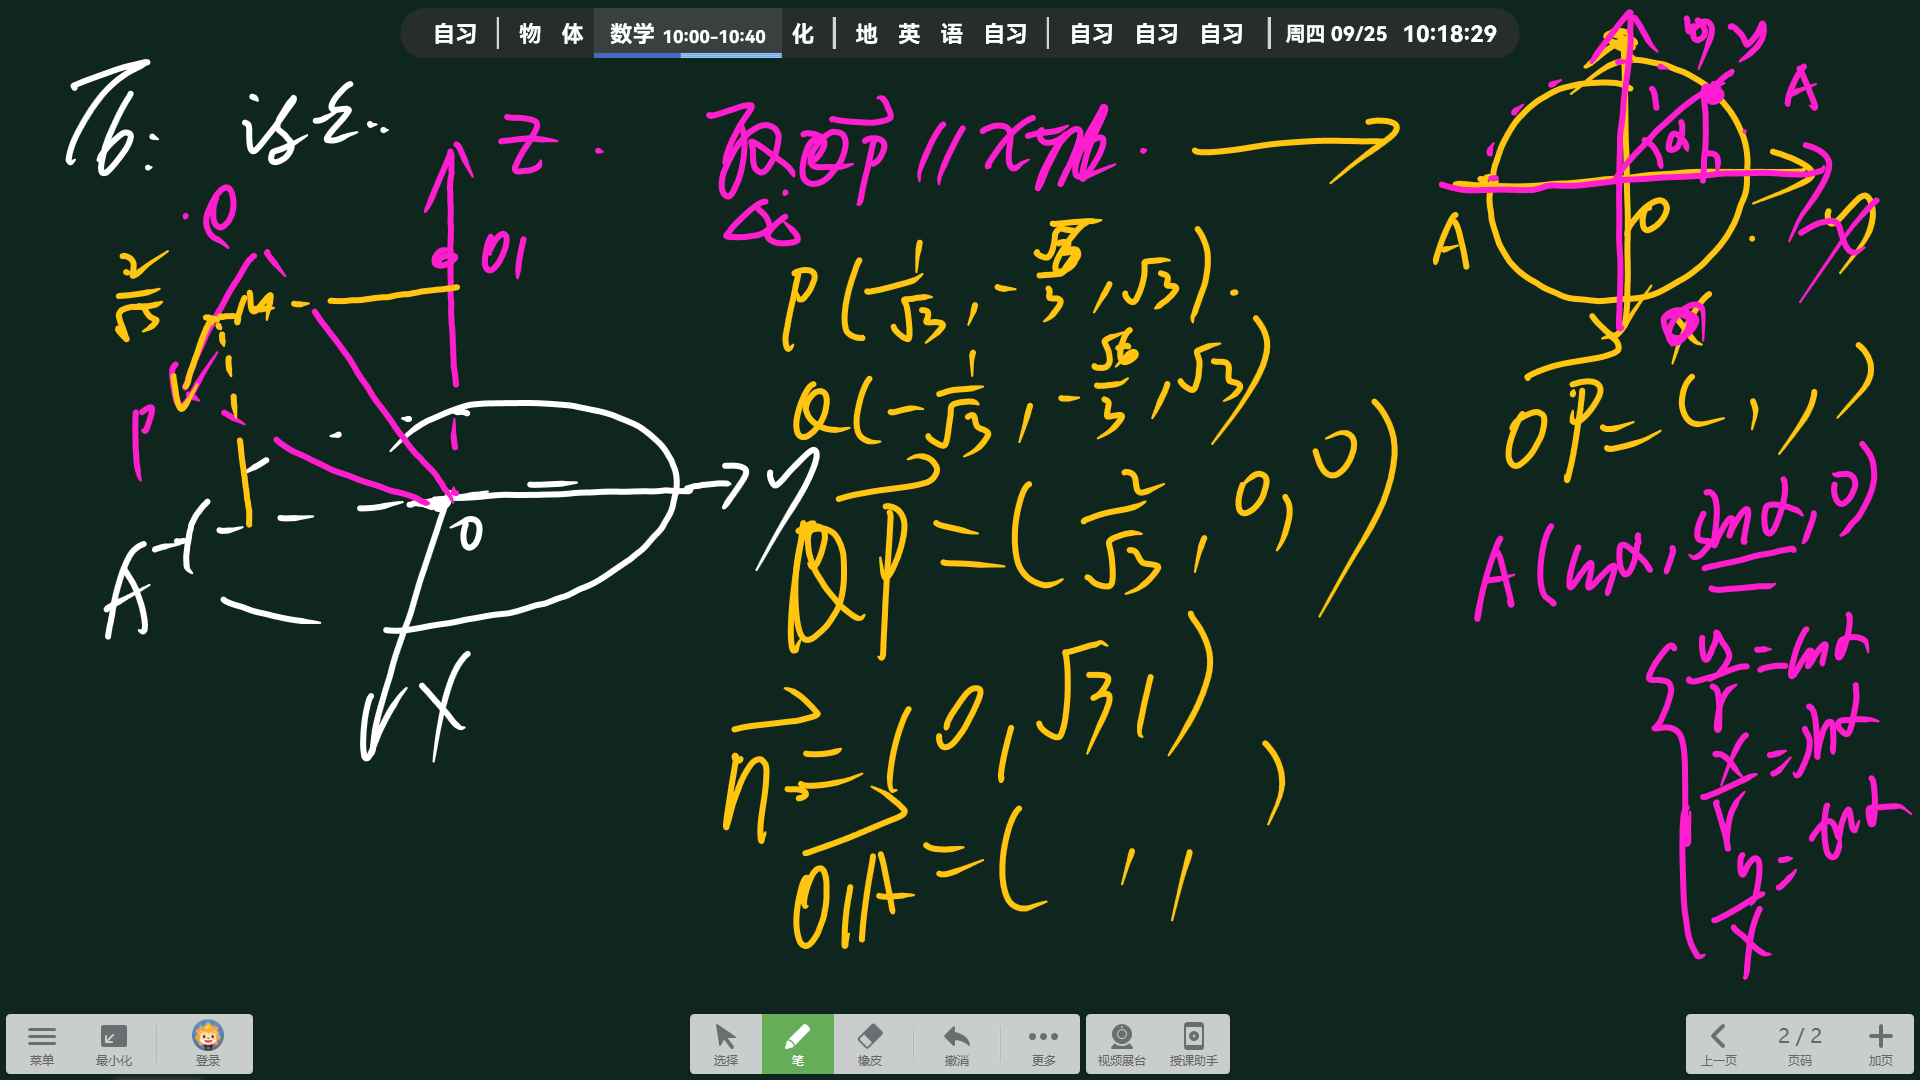 自习 | 物 体 数学 10:00-10:40 化 | 地 英 语 自习 | 自习 自习 自习 | 周四 09/25 10:18:29
T6:
z
y
x
O
O1
A
M
P
Q
2/√3
QP // x轴.
P(1/√3, -√6/3, √3).
Q(-1/√3, -√6/3, √3)
QP = (2/√3, 0, 0)
n = (0, √3, 1)
O1A = ( , , )
y
A
1
α
A
O
x
OP = ( , , )
A(cosα, sinα, 0)
y/r = cosα
x/r = sinα
y/x = tanα
菜单 最小化 登录 选择 笔 橡皮 撤消 更多 视频展台 授课助手 上一页 2 / 2 页码 加页